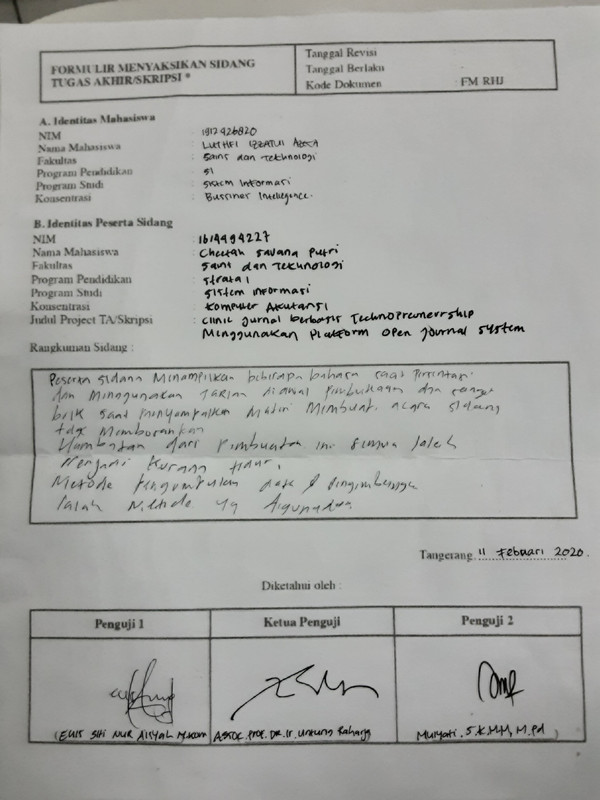 FORMULIR MENYAKSIKAN SIDANG
TUGAS AKHIR/SKRIPSI *
Tanggal Revisi
Tanggal Berlaku
Kode Dokumen : FM RHJ
A. Identitas Mahasiswa
NIM : 1912426820
Nama Mahasiswa : LUTHFI IZZATUL AZCA
Fakultas : Sains dan Teknologi
Program Pendidikan : S1
Program Studi : Sistem Informasi
Konsentrasi : Bussines Intellegence.
B. Identitas Peserta Sidang
NIM : 1614494227
Nama Mahasiswa : Cheetah Savana Putri
Fakultas : Sains dan Teknologi
Program Pendidikan : Strata 1
Program Studi : Sistem Informasi
Konsentrasi : Komputer Akutansi
Judul Project TA/Skripsi : Clinic Jurnal berbasis Technopreneurship
Menggunakan Platform Open Journal System
Rangkuman Sidang :
Peserta sidang Menampilkan beberapa bahasa saat
dan Menggunakan di awal Pembukaan dan sangat
baik saat menyampaikan Materi Membuat acara sidang
tdk Membosankan
Hambatan dari Pembuatan ini semua ialah
Menjadi Kurang tidur,
Metode Pengumpulan data &
Ialah Metode yg digunakan
Tangerang, 11 Februari 2020.
Diketahui oleh :
Penguji 1
Ketua Penguji
Penguji 2
(Euis Siti Nur Aisyah M.kom)
Assoc. Prof. Dr. Ir. Untung Rahardja
Mulyati, S.E, MM, M.Pd)